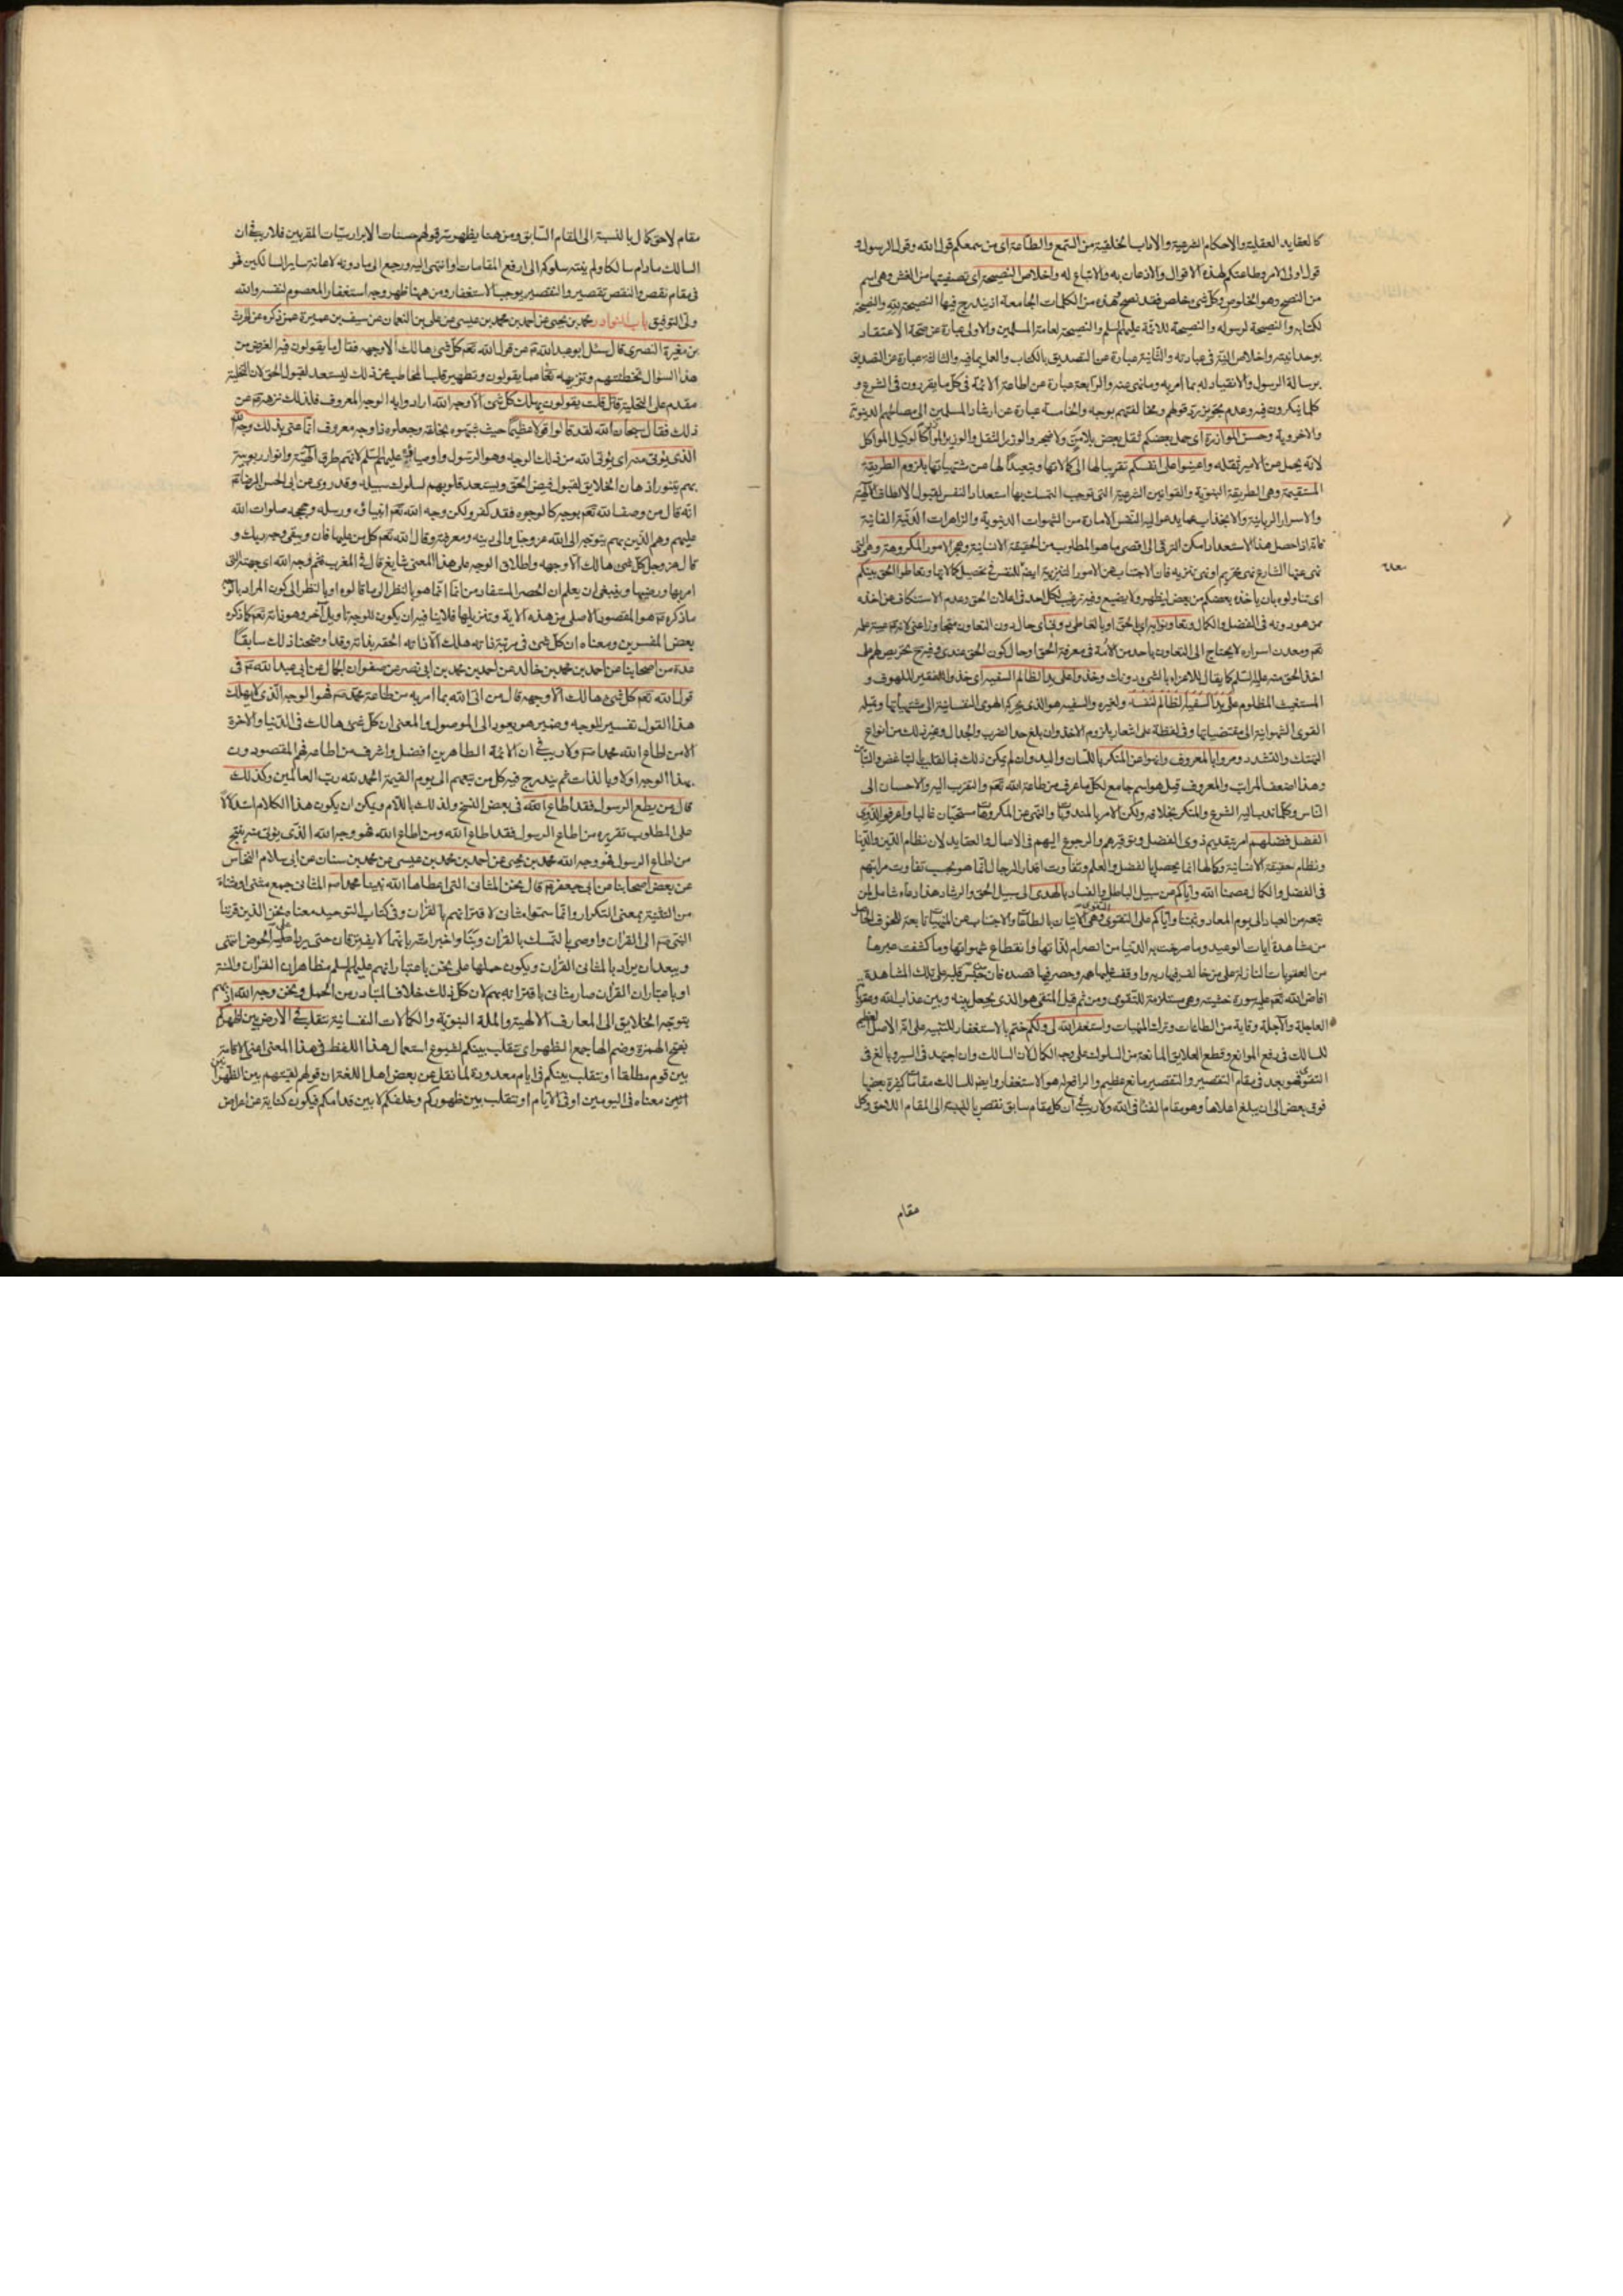 كالعقايد العقلية والاحكام الشرعية والاداب الخلقية من السمع والطاعة اى من سمعكم قول الله وقول الرسول و
قول اولى الامر وطاعتكم لهذه الاقوال والاذعان به والاتباع له واخلاص النصيحة اى تصفيتها من الغش وهى اسم
من النصح وهو الخلوص وكل شئ خلص فقد نصح وهذه من الكلمات الجامعة اذ يندرج فيها النصيحة لله والنصيحة
لكتابه والنصيحة لرسوله والنصيحة للائمة عليهم السلم والنصيحة لعامة المسلمين والاولى عبارة عن صحة الاعتقاد
بوحدانيته واخلاص النية فى عبادته والثانية عبارة عن التصديق بالكتاب والعمل بما فيه والثالثة عبارة عن التصديق
برسالة الرسول والانقياد له بما امر به وما نهى عنه والرابعة عبارة عن اطاعة الائمة فى كل ما يقررون فى الشرع و
كلما ينكرون فيه وعدم تجويز رد قولهم ومخالفتهم بوجه والخامسة عبارة عن ارشاد المسلمين الى مصالحهم الدنيوية
والاخروية وحسن الموازرة اى حمل بعضكم ثقل بعض بلا من ولا ضجر والوزر الثقل والوزير الموازر كالوكيل المواكل
لانه يحمل عن الامير ثقله واعينوا على انفسكم تقريبا لها الى كمالاتها وتبعيدا لها عن مشتهياتها بلزوم الطريقة
المستقيمة وهى الطريقة النبوية والقوانين الشرعية التى توجب التمسك بها استعداد النفس لقبول الالطاف الالهية
والاسرار الربانية والانجذاب عما يدعو اليه النفس الامارة من الشهوات الدنيوية والزاهرات الدنية الفانية
فانه اذا حصل هذا الاستعداد امكن الترقى الى اقصى ما هو المطلوب من الحقيقة الانسانية وهجر الامور المكروهة وهى التى
نهى عنها الشارع نهى تحريم او نهى تنزيه فان الاجتناب عن الامور التنزيهية ايضا للنفس فى تحصيل كمالاتها وتعاطوا الحق بينكم
اى تناولوه بان ياخذه بعضكم من بعض ليظهر ولا يضيع وفيه ترغيب لكل احد فى اعلان الحق وعدم الاستنكاف عن اخذه
ممن هو دونه فى الفضل والكمال وتعاونوا به اى بالحق او بالتعاطى
تعم ومعدن اسراره لا يحتاج الى التعاون باحد من الامة فى معرفة الحق
اخذ الحق منه عليه السلم كما يقال للاعراء بالشئ دونك وخذوا على يد الظالم السفيه اى خذوا للفقير الملهوف و
المستغيث المظلوم على يد السفيه الظالم لنفسه ولغيره والسفيه هو الذى يحركه الهوى النفسانية الى مشتهياتها وتميله
القوى الشهوانية الى مقتضياتها وفى لفظة على اشعار بلزوم الاخذ وان بلغ حد الضرب والجدال وغير ذلك من انواع
التهتك والتشدد ومروا بالمعروف وانهوا عن المنكر باللسان واليد وان لم يكن ذلك فبالقلب
وهذا اضعف المراتب والمعروف قيل هو اسم جامع لكل ما عرف من طاعة الله تعم والتقرب اليه والاحسان الى
الناس وكلما ندب اليه الشرع والمنكر بخلافه ولكن الامر بالمندوبات والنهى عن المكروهات مستحبان غالبا واعرفوا لذوى
الفضل فضلهم امر بتقديم ذوى الفضل وتوقيرهم والرجوع اليهم فى الاعمال والعقايد لان نظام الدين والدنيا
ونظام حقيقة الانسانية وكمالها انما يحصل بالفضل والعلم وتفاوت اقدار الرجال انما هو بحسب تفاوت مراتبهم
فى الفضل والكمال عصمنا الله واياكم من سبيل الباطل والفساد بالهدى الى سبيل الحق والرشاد هذا دعاء شامل لمن
تبعه من العباد الى يوم المعاد وثبتنا واياكم على التقوى التقوى هى الاتيان بالطاعات والاجتناب عن المنهيات تابعة للخوف الحاصل
من مشاهدة ايات الوعيد وما صرحت به الدنيا من انصرام لذاتها وانقطاع شهواتها وما كشفت عبرها
من العقوبات النازلة على من خالف فيها ربه
افاض الله تعم عليه صورة خشيته وهى مستلزمة للتقوى ومن ثم قيل المتقى هو الذى يجعل بينه وبين عذاب الله وعقوباته
العاجلة والاجلة وقاية من الطاعات وترك المنهيات واستغفر الله لى ولكم ختم بالاستغفار للتنبيه على انه الاصل العظيم
للسالك فى رفع الموانع وقطع العلايق المانعة من السلوك على وجه الكمال لان السالك وان اجتهد فى السير وبالغ فى
التقوى فهو بعد فى مقام التقصير والتقصير مانع عظيم والرافع له هو الاستغفار وايضا للسالك مقامات كثيرة بعضها
فوق بعض الى ان يبلغ اعلاها وهو مقام الفناء فى الله ولا ريب فى ان كل مقام سابق نقص بالنسبة الى المقام اللاحق وكل
مقام
مقام لاحق كمال بالنسبة الى المقام السابق ومن هنا يظهر سر قولهم حسنات الابرار سيئات المقربين فلا ريب فى ان
السالك ما دام سالكا ولم ينته سلوكه الى ارفع المقامات او انتهى اليه ورجع الى ما دونه لاعانة ساير السالكين فهو
فى مقام نقص والنقص تقصير والتقصير يوجب الاستغفار ومن ههنا ظهر وجه استغفار المعصوم لنفسه والله
ولى التوفيق باب النوادر محمد بن يحيى عن احمد بن محمد بن عيسى عن على بن النعمان عن سيف بن عميرة عمن ذكره عن الحرث
بن مغيرة النصرى قال سئل ابو عبد الله ع عن قول الله تعم كل شئ هالك الا وجهه فقال ما يقولون فيه الغرض من
هذا السؤال تخطئتهم وتنزيهه تعم عما يقولون وتطهير قلب المخاطب عن ذلك ليستعد لقبول الحق لان التخلية
مقدم على التحلية قال قلت يقولون يهلك كل شئ الا وجه الله ارادوا به الوجه المعروف فلذلك نزهه ع عن
ذلك فقال سبحان الله لقد قالوا قولا عظيما حيث شبهوه بخلقه وجعلوه ذا وجه معروف انما عنى بذلك وجه الله
الذى يؤتى منه اى يؤتى الله من ذلك الوجه وهو الرسول واوصيائه عليهم السلم لانهم طرق الهية وانوار ربوبية
بهم يتنور اذهان الخلايق لقبول فيض الحق ويستعد قلوبهم لسلوك سبيله وقد روى عن ابى الحسن الرضا ع
انه قال من وصف الله تعم بوجه كالوجوه فقد كفر ولكن وجه الله تعم انبياؤه ورسله وحججه صلوات الله
عليهم وهم الذين بهم يتوجه الى الله عز وجل والى دينه ومعرفته وقال الله تعم كل من عليها فان ويبقى وجه ربك و
قال عز وجل كل شئ هالك الا وجهه واطلاق الوجه على هذا المعنى شايع قال فى المغرب فثم وجه الله اى جهته التى
امر بها ورضيها وينبغى ان يعلم ان الحصر المستفاد من انما انما هو بالنظر الى ما قالوه او بالنظر الى كون المراد بالوجه
ما ذكره ع هو المقصود الاصلى من هذه الاية وتنزيلها فلا ينافيه ان يكون للوجه تاويل آخر وهو ذاته تعم كما ذكره
بعض المفسرين ومعناه ان كل شئ فى مرتبة ذاته هالك الا ذاته الحقة بذاته وقد اوضحنا ذلك سابقا
عدة من اصحابنا عن احمد بن محمد بن خالد عن احمد بن محمد بن ابى نصر عن صفوان الجمال عن ابى عبد الله ع فى
قول الله تعم كل شئ هالك الا وجهه قال من اتى الله بما امر به من طاعة محمد ص فهو الوجه الذى لا يهلك
هذا القول تفسير للوجه وضمير هو يعود الى الموصول والمعنى ان كل شئ هالك فى الدنيا والاخرة
الا من اطاع الله محمدا ص ولا ريب فى ان الائمة الطاهرين افضل واشرف من اطاعه فهم المقصودون
بهذا الوجه اولا وبالذات ثم يندرج فيه كل من تبعهم الى يوم القيمة الحمد لله رب العالمين وكذلك
قال من يطع الرسول فقد اطاع الله فى بعض النسخ ولذلك باللام ويمكن ان يكون هذا الكلام استدلالا
على المطلوب تقريره من اطاع الرسول فقد اطاع الله ومن اطاع الله فهو وجه الله الذى يؤتى منه ينتج
من اطاع الرسول فهو وجه الله محمد بن يحيى عن احمد بن محمد بن عيسى عن محمد بن سنان عن ابى سلام النحاس
عن بعض اصحابنا عن ابى جعفر ع قال نحن المثانى التى اعطاها الله نبينا محمدا ص المثانى جمع مثنى او مثناة
من التثنية بمعنى التكرار وانما سموا مثانى لاقترانهم بالقران وفى كتاب التوحيد معناه نحن الذين قرننا
النبى ص الى القران واوصى بالتمسك بالقران وبنا واخبر امته بانهما لا يفترقان حتى يردا عليه الحوض انتهى
ويبعد ان يراد بالمثانى القران ويكون حملها على نحن باعتبار انهم عليهم السلم مظاهر ان القران والسنة
او باعتبار ان القران صار مثانى باقترانه بهم لان كل ذلك خلاف المتبادر من الحمل ونحن وجه الله اذ بهم
يتوجه الخلايق الى المعارف الالهية والملة النبوية والكمالات النفسانية نتقلب فى الارض بين اظهركم
بفتح الهمزة وضم الها جمع الظهر اى نتقلب بينكم لشيوع استعمال هذا اللفظ فى هذا المعنى اعنى الاقامة
بين قوم مطلقا او نتقلب بينكم فى ايام معدودة لما نقل عن بعض اهل اللغة ان قولهم لقيتهم بين الظهرانين
معناه فى اليومين او فى الايام او نتقلب بين ظهوركم وخلفكم لا بين قدامكم فيكون كناية عن اعراض